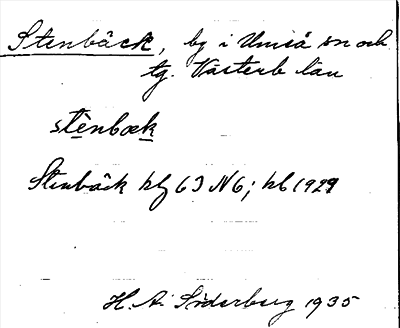 Stenbäck, by i Umeå sn och
tg. Västerb län
stènbæk
Stenbäck blg 63 N6; hb 1929
H. A. Söderberg 1935